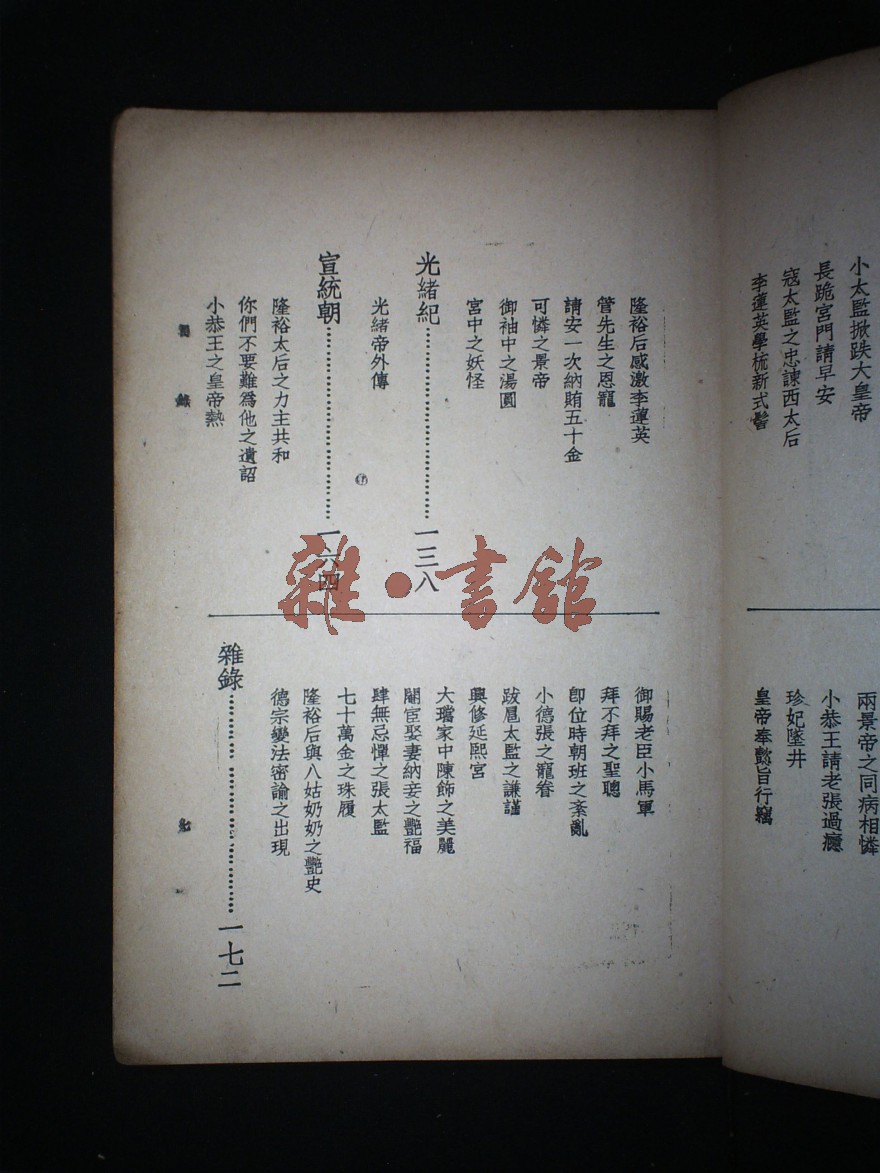 小太監掀跌大皇帝
長跪宮門請早安
寇太監之忠諫西太后
李蓮英學梳新式髻
兩景帝之同病相憐
小恭王請老張過癮
珍妃墜井
皇帝奉懿旨行竊
隆裕后感激李蓮英
管先生之恩寵
請安一次納賄五十金
可憐之景帝
御袖中之湯圓
宮中之妖怪
光緒紀……………………一三八
光緒帝外傳
宣統朝……………………一六四
隆裕太后之力主共和
你們不要難爲他之遺詔
小恭王之皇帝熱
御賜老臣小馬軍
拜不拜之聖聰
卽位時朝班之紊亂
小德張之寵眷
跋扈太監之謙謹
興修延熙宮
大璫家中陳飾之美麗
閹宦娶妻納妾之艷福
肆無忌憚之張太監
七十萬金之珠履
隆裕后與八姑奶奶之艷史
德宗變法密諭之出現
雜錄……………………一七二
雜·書館